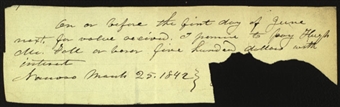 On or before the first day of June
next for value received. I promise to pay Hugh
Mc. Fall or bearer five hundred dollars with
interest
March 25. 1842